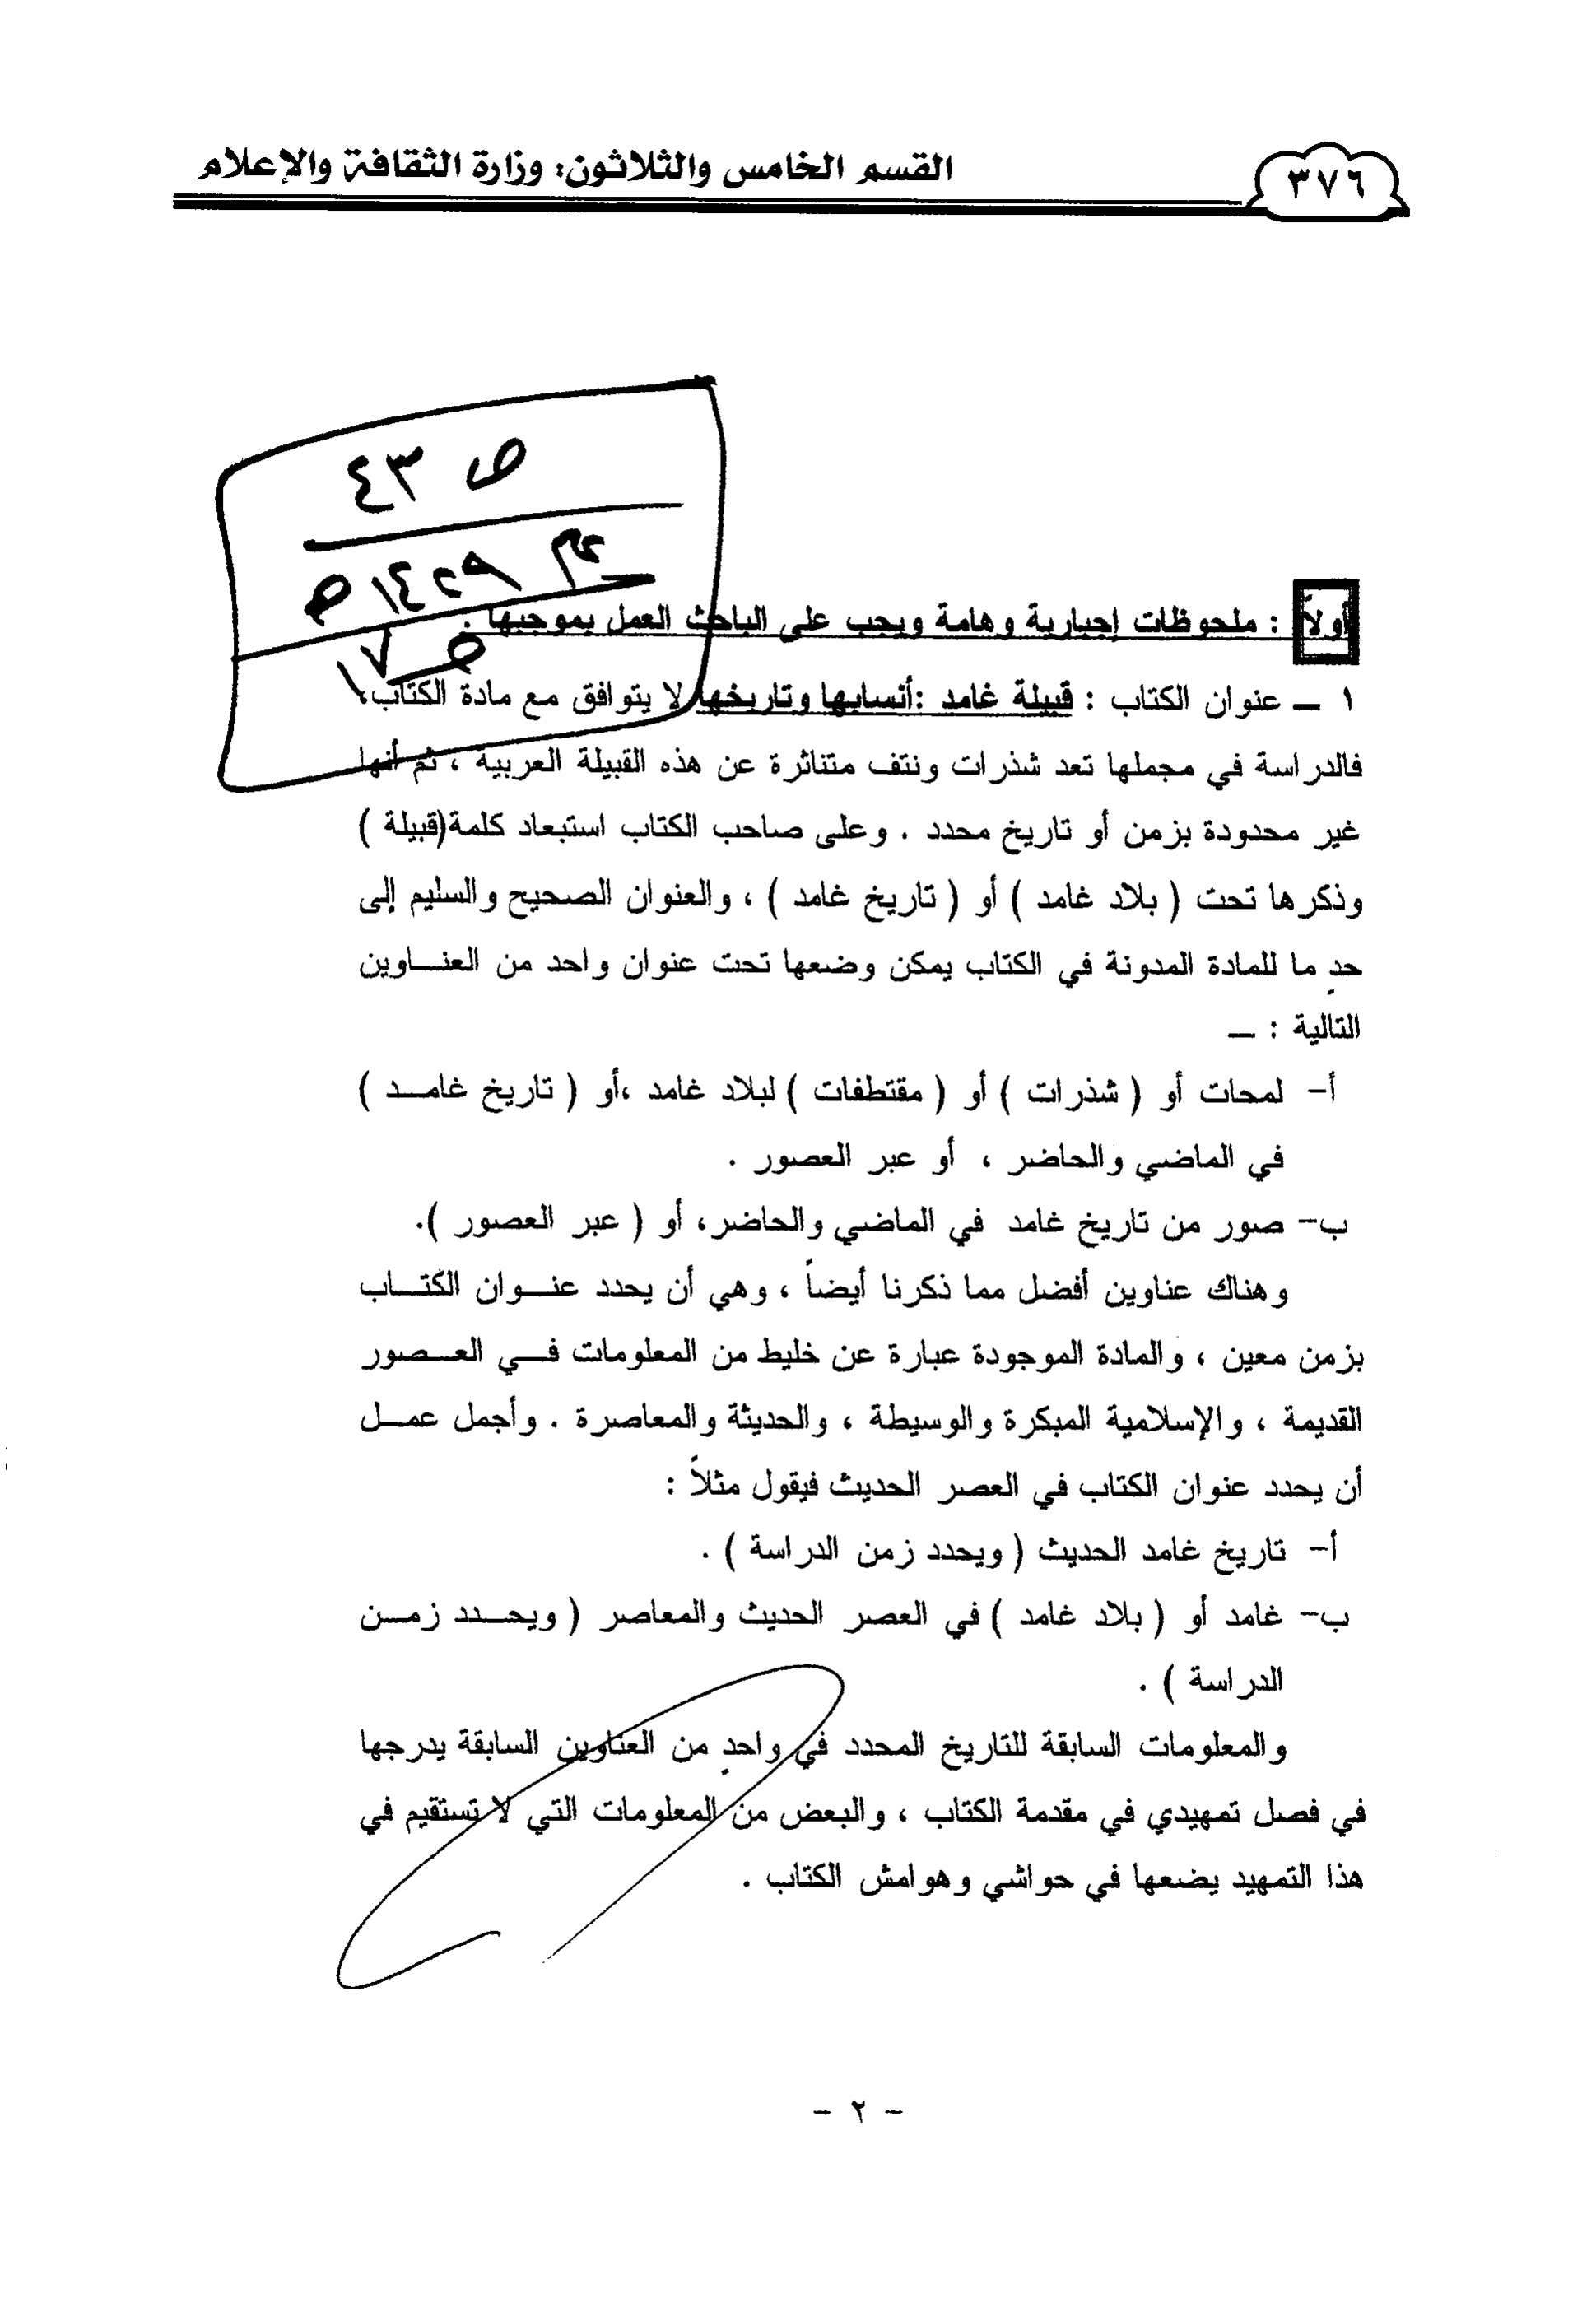 ٣٧٦
القسم الخامس والثلاثون: وزارة الثقافة والإعلام
ص ٤٣
١٤٢٩ هـ
ص ١٧
أولاً : ملحوظات إجبارية وهامة ويجب على الباحث العمل بموجبها .
١ ــ عنوان الكتاب : قبيلة غامد :أنسابها وتاريخها لا يتوافق مع مادة الكتاب،
فالدراسة في مجملها تعد شذرات ونتف متناثرة عن هذه القبيلة العربية ، ثم أنها
غير محدودة بزمن أو تاريخ محدد . وعلى صاحب الكتاب استبعاد كلمة(قبيلة )
وذكرها تحت ( بلاد غامد ) أو ( تاريخ غامد ) ، والعنوان الصحيح والسليم إلى
حدٍ ما للمادة المدونة في الكتاب يمكن وضعها تحت عنوان واحد من العنــاوين
التالية : ــ
أ- لمحات أو ( شذرات ) أو ( مقتطفات ) لبلاد غامد ،أو ( تاريخ غامــد )
في الماضي والحاضر ، أو عبر العصور .
ب- صور من تاريخ غامد في الماضي والحاضر، أو ( عبر العصور ).
وهناك عناوين أفضل مما ذكرنا أيضاً ، وهي أن يحدد عنــوان الكتــاب
بزمن معين ، والمادة الموجودة عبارة عن خليط من المعلومات فــي العــصور
القديمة ، والإسلامية المبكرة والوسيطة ، والحديثة والمعاصرة . وأجمل عمــل
أن يحدد عنوان الكتاب في العصر الحديث فيقول مثلاً :
أ- تاريخ غامد الحديث ( ويحدد زمن الدراسة ) .
ب- غامد أو ( بلاد غامد ) في العصر الحديث والمعاصر ( ويحــدد زمــن
الدراسة ) .
والمعلومات السابقة للتاريخ المحدد في واحدٍ من العناوين السابقة يدرجها
في فصل تمهيدي في مقدمة الكتاب ، والبعض من المعلومات التي لا تستقيم في
هذا التمهيد يضعها في حواشي وهوامش الكتاب .
- ٢ -